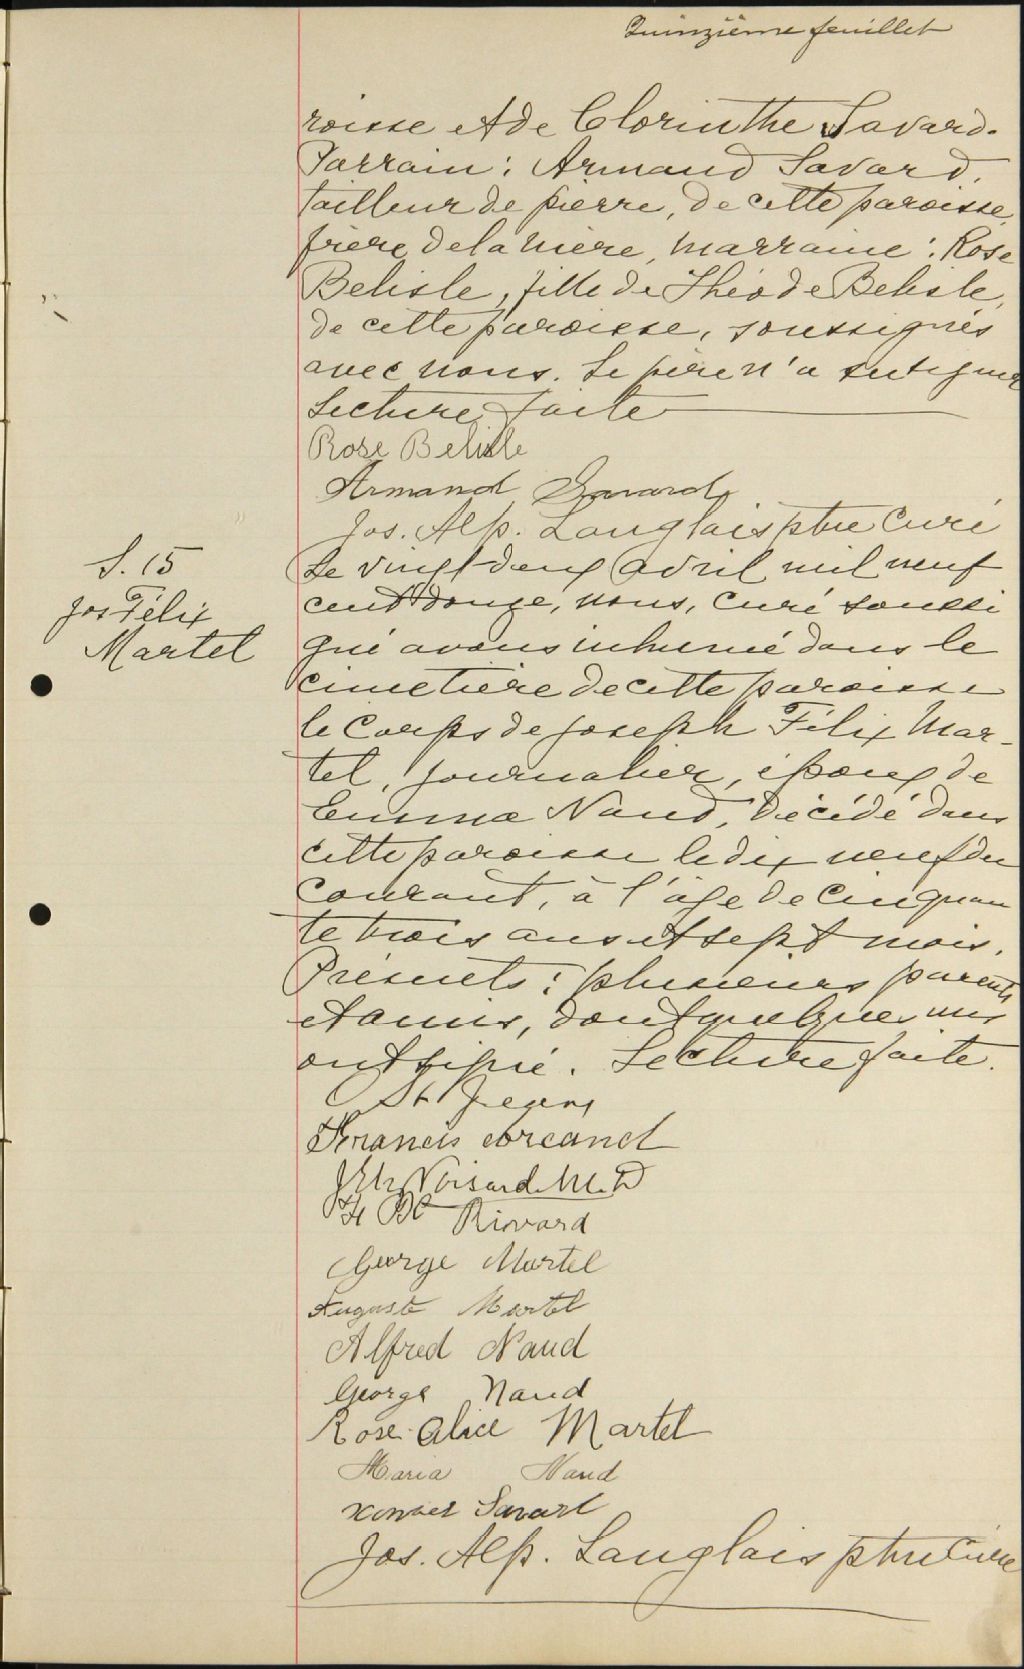 Quinzième feuillet
roisse et de Clorinthe Savard.
Parrain: Armand Savard,
tailleur de pierre, de cette paroisse,
frère de la mère, marraine: Rose
Belisle, fille de Théode Belisle,
de cette paroisse, soussignés
avec nous. Le père n'a su signer
Lecture faite
Rose Belisle
Armand Savard
Jos. Alp. Langlais ptre Curé
S. 15
Jos Félix
Martel
Le vingt-deux avril mil neuf
cent douze, nous, curé soussi
gné avons inhumé dans le
cimetière de cette paroisse
le corps de Joseph Félix Mar-
tel, journalier, époux de
Emma Naud, décédé dans
cette paroisse le dix neuf du
courant, à l'âge de cinquan
te trois ans et sept mois.
Présents: plusieurs parents
et amis, dont quelques uns
ont signé. Lecture faite.
Francis
Rivard
George Martel
Auguste Martel
Alfred Naud
George Naud
Rose-Alice Martel
Maria Naud
Savard
Jos. Alp. Langlais ptre Curé